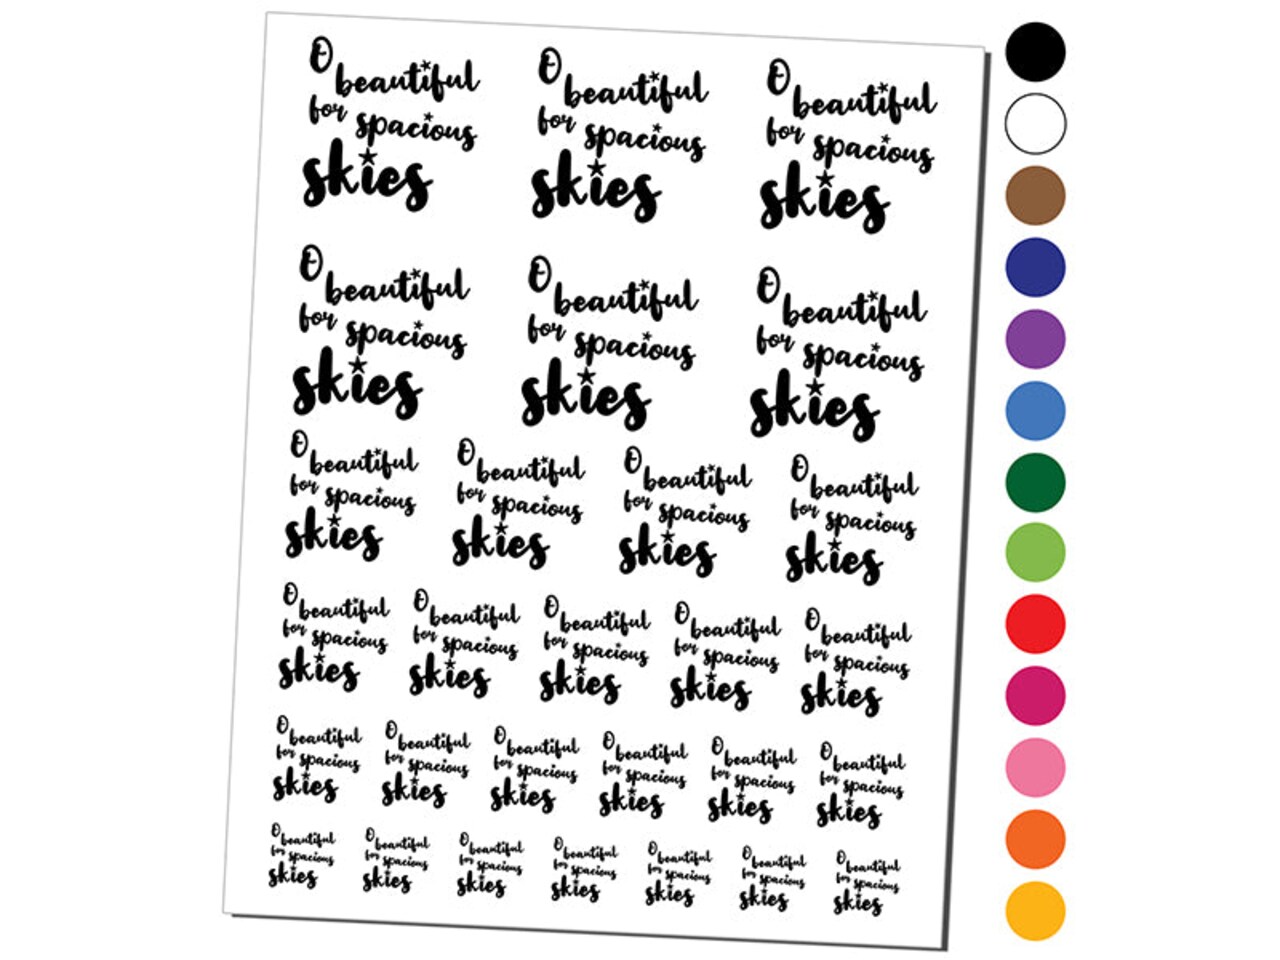 O beautiful
for spacious
skies
O beautiful
for spacious
skies
O beautiful
for spacious
skies
O beautiful
for spacious
skies
O beautiful
for spacious
skies
O beautiful
for spacious
skies
O beautiful
for spacious
skies
O beautiful
for spacious
skies
O beautiful
for spacious
skies
O beautiful
for spacious
skies
O beautiful
for spacious
skies
O beautiful
for spacious
skies
O beautiful
for spacious
skies
O beautiful
for spacious
skies
O beautiful
for spacious
skies
O beautiful
for spacious
skies
O beautiful
for spacious
skies
O beautiful
for spacious
skies
O beautiful
for spacious
skies
O beautiful
for spacious
skies
O beautiful
for spacious
skies
O beautiful
for spacious
skies
O beautiful
for spacious
skies
O beautiful
for spacious
skies
O beautiful
for spacious
skies
O beautiful
for spacious
skies
O beautiful
for spacious
skies
O beautiful
for spacious
skies